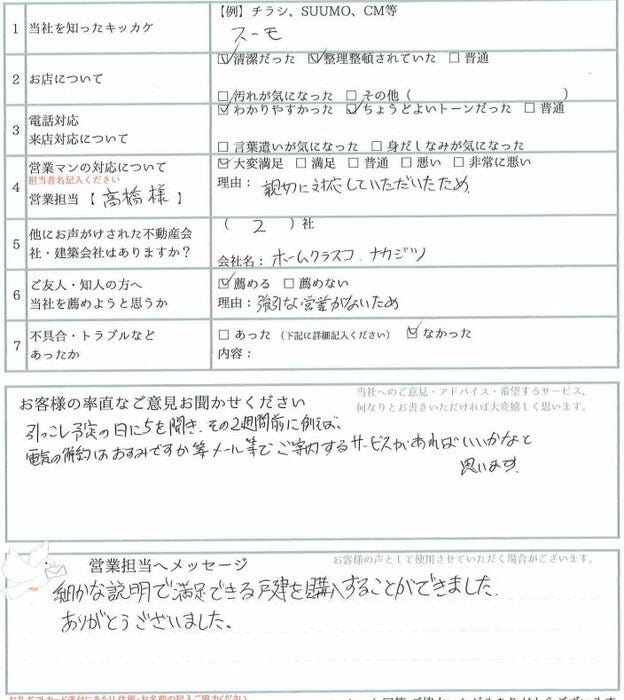 【例】チラシ、SUUMO、CM等
1 当社を知ったキッカケ スーモ
2 お店について ☑清潔だった ☑整理整頓されていた □普通
□汚れが気になった □その他( )
3 電話対応 来店対応について ☑わかりやすかった ☑ちょうどよいトーンだった □普通
□言葉遣いが気になった □身だしなみが気になった
4 営業マンの対応について ☑大変満足 □満足 □普通 □悪い □非常に悪い
担当者名記入ください
営業担当【高橋様】 理由:親切に対応していただいたため
5 他にお声がけされた不動産会 ( 2 )社
社・建築会社はありますか? 会社名:ホームクラスコ.ナカジツ
6 ご友人・知人の方へ ☑薦める □薦めない
当社を薦めようと思うか 理由:強引な営業がないため
7 不具合・トラブルなど □あった(下記に詳細記入ください) ☑なかった
あったか 内容:
お客様の率直なご意見お聞かせください
当社へのご意見・アドバイス・希望するサービス、
何なりとお書きいただければ大変嬉しく思います。
引っこし予定の日にちを聞き、その2週間前に例えば、
電気の予約はおすみですか等メール等でご案内するサービスがあればいいかなと
思います.
営業担当へメッセージ
お客様の声として使用させていただく場合がございます。
細かな説明で満足できる戸建を購入することができました.
ありがとうございました、